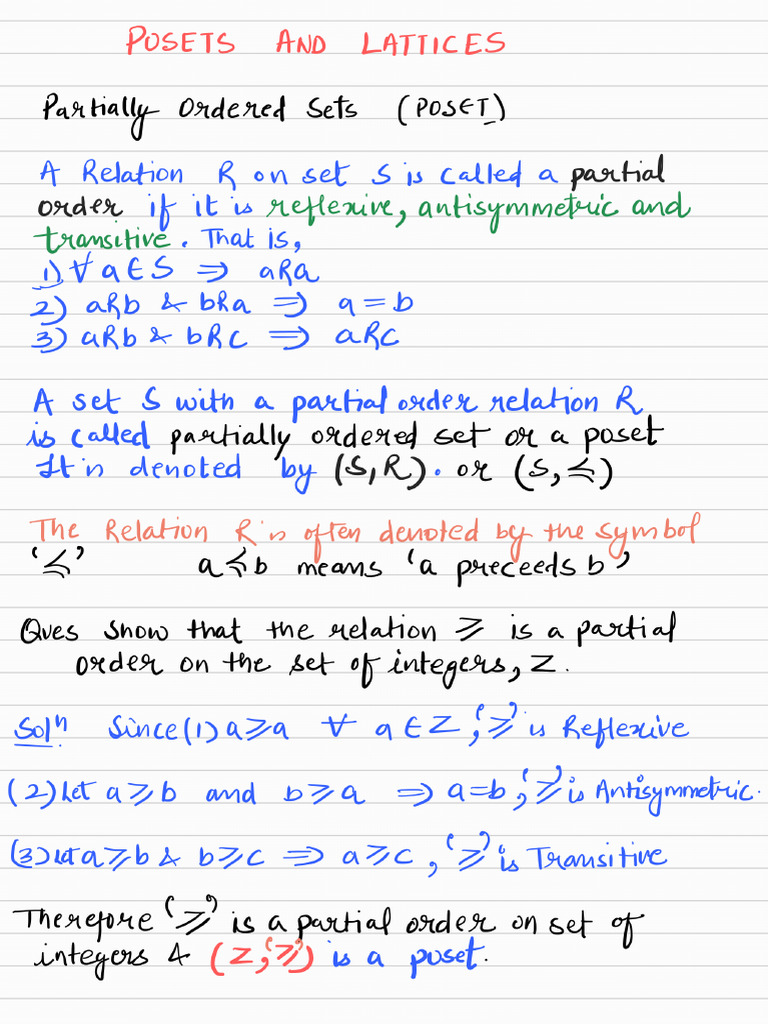 POSETS AND LATTICES
Partially Ordered Sets (POSET)
A Relation R on set S is called a partial
order if it is reflexive, antisymmetric and
transitive. That is,
1) ∀ a ∈ S ⇒ aRa
2) aRb & bRa ⇒ a = b
3) aRb & bRc ⇒ aRc
A set S with a partial order relation R
is called partially ordered set or a poset
It is denoted by (S, R). or (S, ≼)
The Relation R is often denoted by the symbol
'≼' a ≼ b means 'a preceeds b'
Ques Show that the relation ⩾ is a partial
order on the set of integers, Z.
Solⁿ Since (1) a ⩾ a ∀ a ∈ Z, '⩾' is Reflexive
(2) Let a ⩾ b and b ⩾ a ⇒ a = b, '⩾' is Antisymmetric.
(3) Let a ⩾ b & b ⩾ c ⇒ a ⩾ c, '⩾' is Transitive
Therefore '⩾' is a partial order on set of
integers & (Z, '⩾') is a poset.